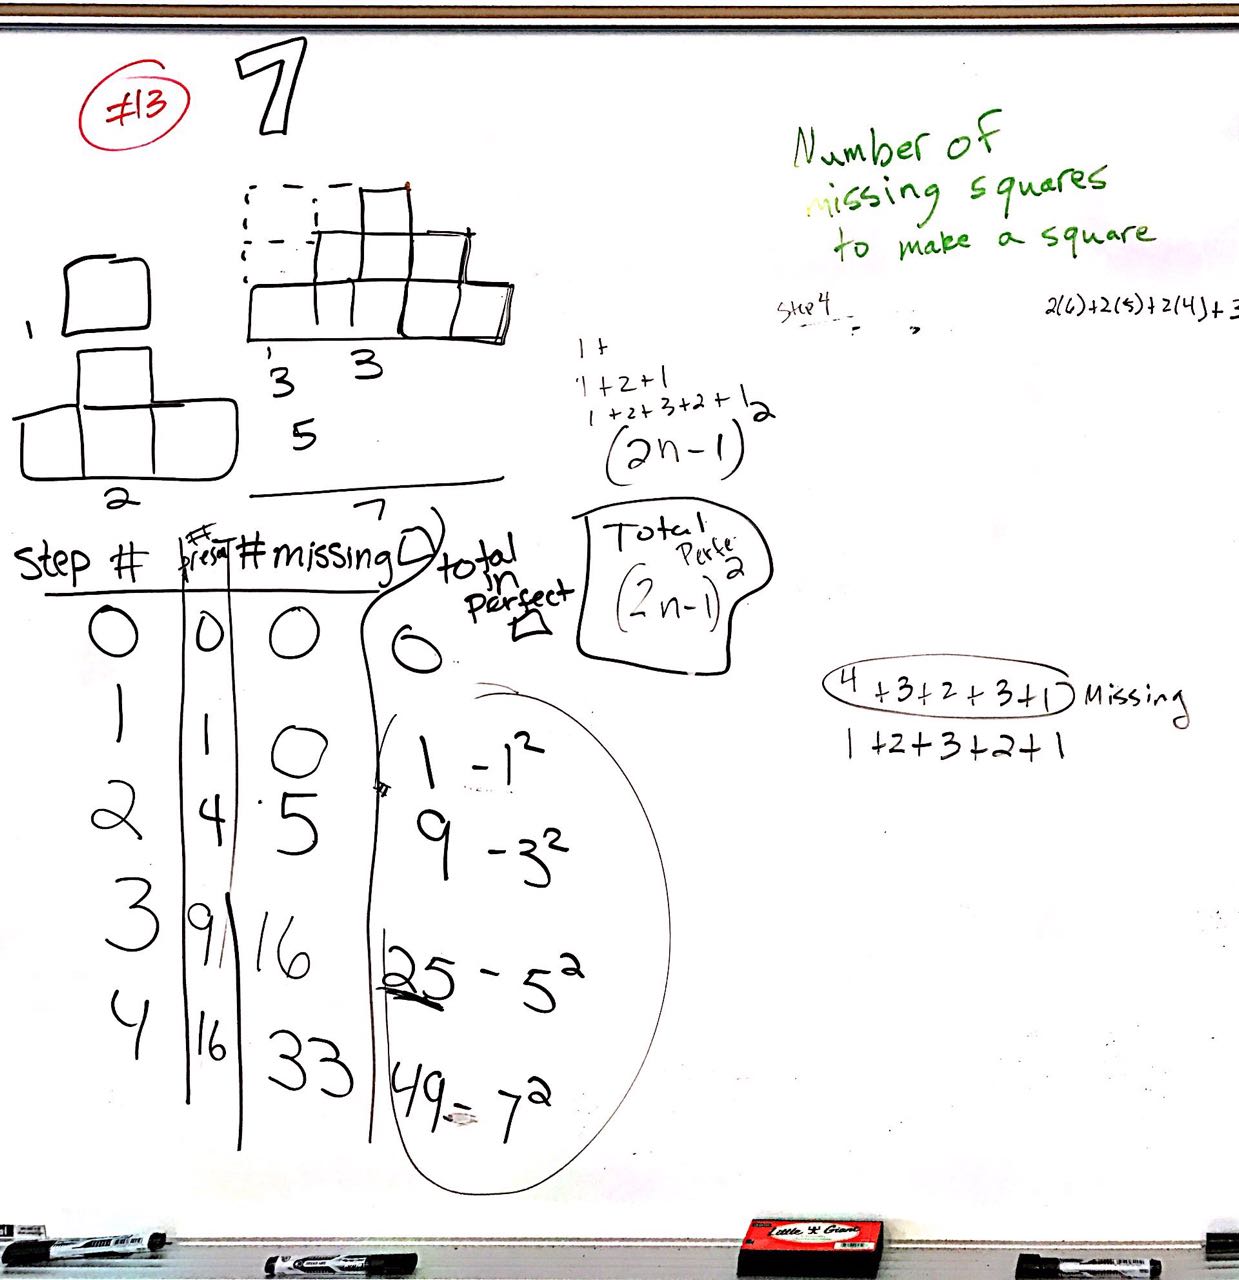 #13
7
Number of
missing squares
to make a square
Step 4
2(6)+2(5)+2(4)+3
1
2
3 3
5
7
1 +
1 + 2 + 1
1 + 2 + 3 + 2 + 1
(2n-1)²
Total
Perfe
(2n-1)²
Step # # present # missing total in perfect
0 0 0 0
1 1 0 1 - 1²
2 4 5 9 - 3²
3 9 16 25 - 5²
4 16 33 49 = 7²
4 +3+2+3+1 Missing
1 +2+3+2+1
Little Giant